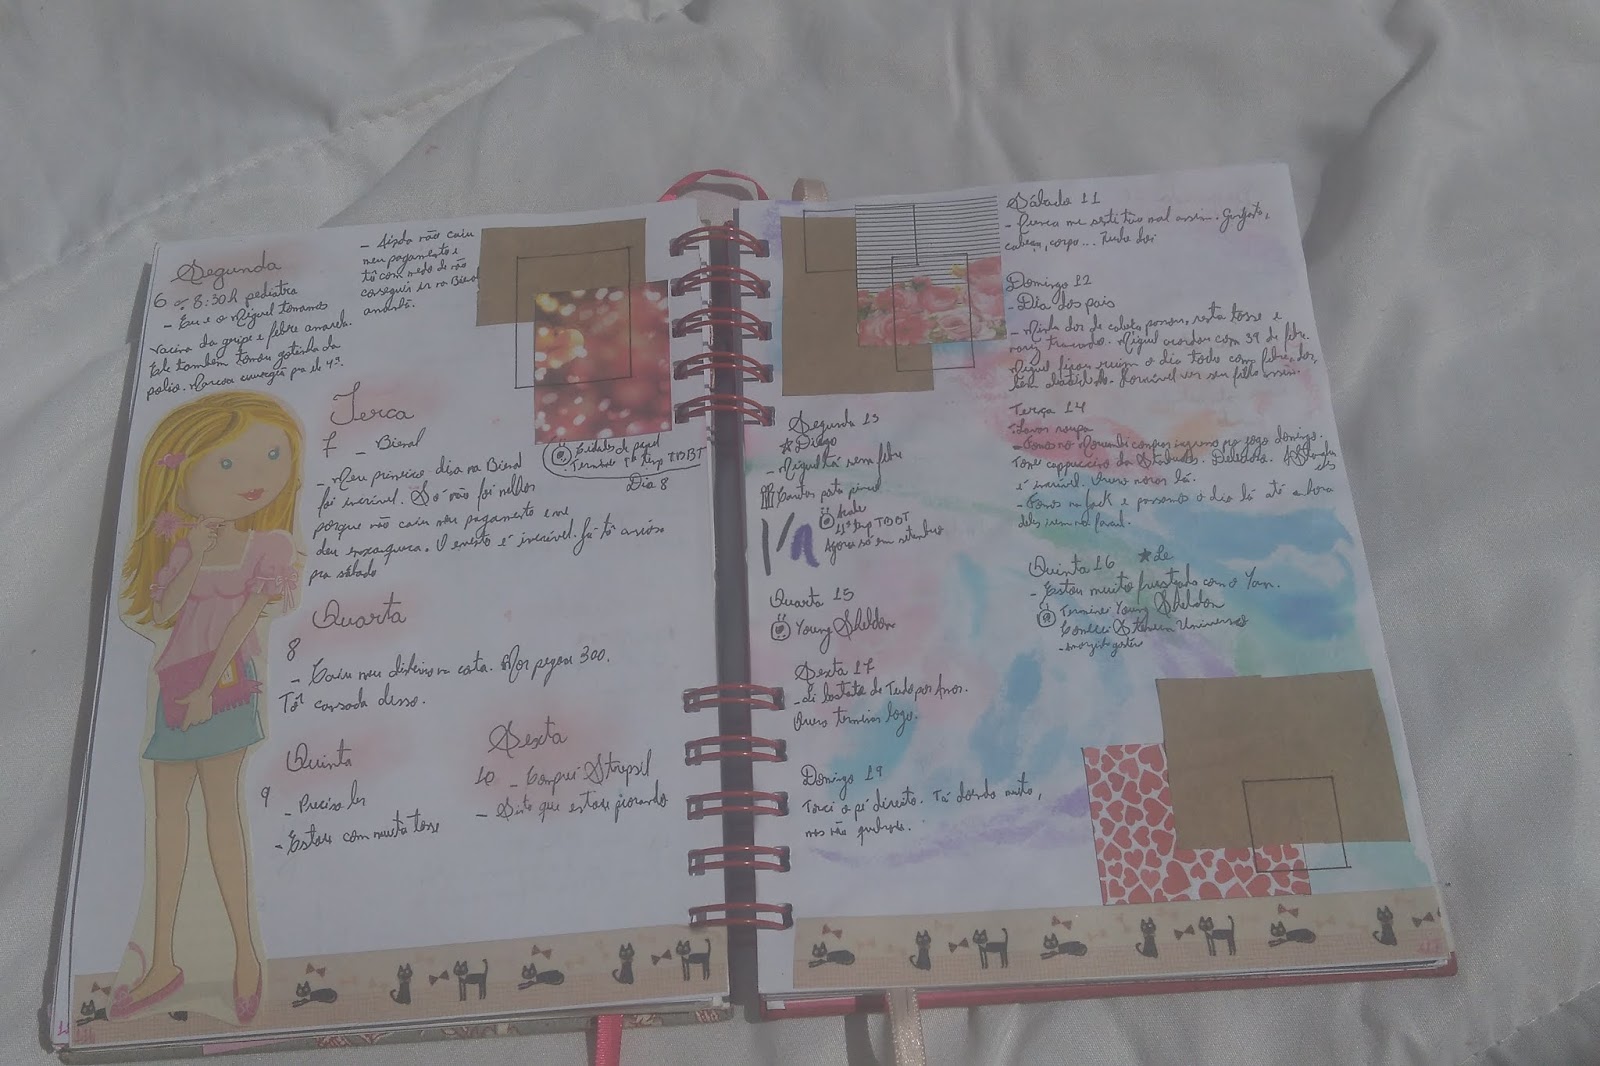 Segunda
6 - 8:30h pediatra
- Eu e o Miguel tomamos
vacina da gripe e febre amarela.
Ele também tomou gotinha da
polio. Marcou cirurgia pra ele
- Ainda não caiu
meu pagamento e
tô com medo de não
conseguir ir na Bienal
amanhã.
Terça
7 - Bienal
- Meu primeiro dia na Bienal
foi incrível. Só não foi melhor
porque não caiu meu pagamento e me
deu enxaqueca. O evento é incrível. Já tô ansiosa
pra sábado
Cidades de papel
Terminei 7ª temp TBBT
Dia 8
Quarta
8
- Caiu meu dinheiro na conta. Mor pegou 300.
Tô cansada disso.
Quinta
9
- Preciso ler
- Estou com muita tosse
Sexta
10 - Comprei Strepsil
- Sinto que estou piorando
Sábado 11
- Nunca me senti tão mal assim. Garganta,
cabeça, corpo... Tudo dói
Domingo 12
- Dia dos pais
- Minha dor de cabeça passou, resta tosse e
nariz trancado. Miguel acordou com 39 de febre.
Miguel ficou ruim o dia todo com febre, dor,
Horrível ver seu filho assim.
Segunda 13
Diego
- Miguel tá sem febre
Contos para
11ª temp TBBT
Agora só em setembro
Terça 14
- Lavar roupa
- Fomos no Morumbi comprar ingresso pro jogo domingo.
Tomei cappuccino da Starbucks. Delicioso. A
é incrível. Quero morar lá.
- Fomos na Jack e passamos o dia lá até a hora
deles irem na
Quarta 15
Young Sheldon
Quinta 16 Le
- Estou muito frustrada com o Yan.
Terminei Young Sheldon
Comecei Steven Universo
Sexta 17
- Li bastante de Tudo por Amor.
Quero terminar logo.
Domingo 19
Torci o pé direito. Tá doendo muito,
mas não quebrou.